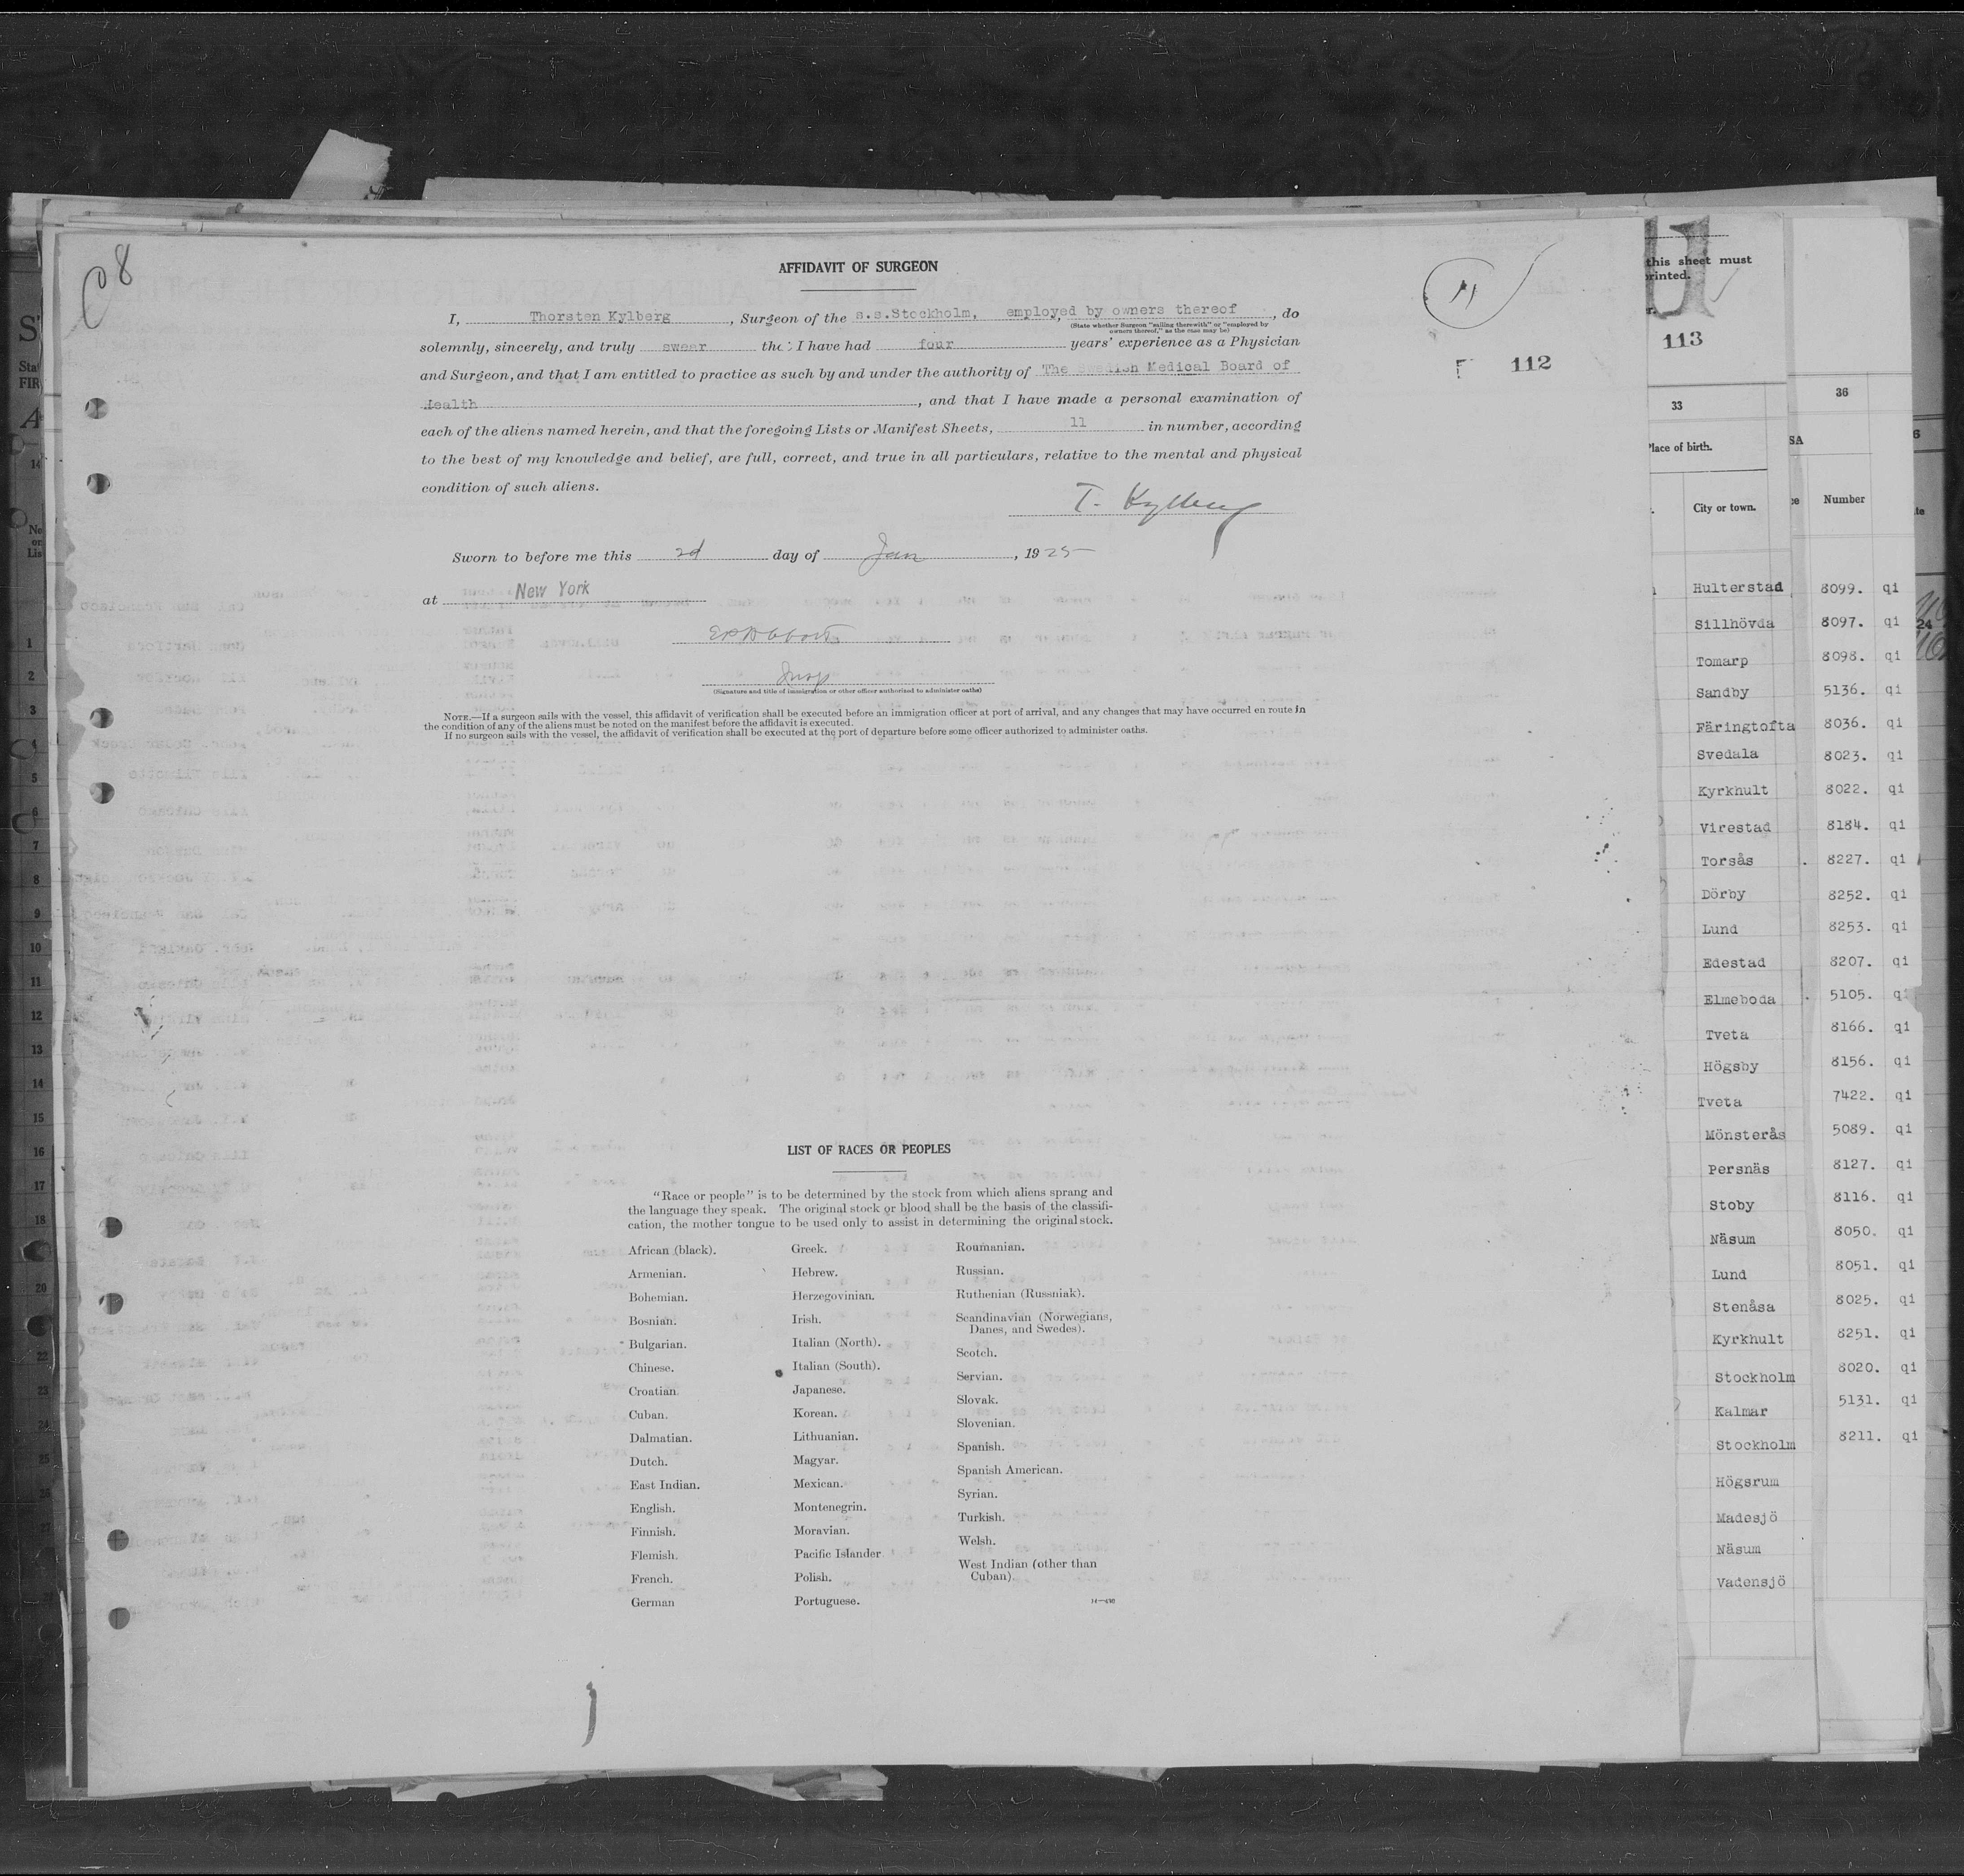 C 8
AFFIDAVIT OF SURGEON
I, Thorsten Kylberg, Surgeon of the s.s.Stockholm, employed by owners thereof, do
(State whether Surgeon "sailing therewith" or "employed by
owners thereof," as the case may be)
solemnly, sincerely, and truly swear that I have had four years' experience as a Physician
and Surgeon, and that I am entitled to practice as such by and under the authority of The Swedish Medical Board of
Health, and that I have made a personal examination of
each of the aliens named herein, and that the foregoing Lists or Manifest Sheets, 11 in number, according
to the best of my knowledge and belief, are full, correct, and true in all particulars, relative to the mental and physical
condition of such aliens.
T. Kylberg
Sworn to before me this 2d day of Jan, 1925
at New York
Insp
(Signature and title of immigration or other officer authorized to administer oaths)
NOTE.—If a surgeon sails with the vessel, this affidavit of verification shall be executed before an immigration officer at port of arrival, and any changes that may have occurred en route in
the condition of any of the aliens must be noted on the manifest before the affidavit is executed.
If no surgeon sails with the vessel, the affidavit of verification shall be executed at the port of departure before some officer authorized to administer oaths.
11
112
LIST OF RACES OR PEOPLES
"Race or people" is to be determined by the stock from which aliens sprang and
the language they speak. The original stock or blood shall be the basis of the classifi-
cation, the mother tongue to be used only to assist in determining the original stock.
African (black).
Armenian.
Bohemian.
Bosnian.
Bulgarian.
Chinese.
Croatian
Cuban.
Dalmatian.
Dutch.
East Indian.
English.
Finnish.
Flemish.
French.
German
Greek.
Hebrew.
Herzegovinian.
Irish.
Italian (North).
Italian (South).
Japanese.
Korean.
Lithuanian.
Magyar.
Mexican.
Montenegrin.
Moravian.
Pacific Islander
Polish.
Portuguese.
Roumanian.
Russian.
Ruthenian (Russniak).
Scandinavian (Norwegians,
Danes, and Swedes).
Scotch.
Servian.
Slovak.
Slovenian.
Spanish.
Spanish American.
Syrian.
Turkish.
Welsh.
West Indian (other than
Cuban).
this sheet must
printed.
113
33
Place of birth.
City or town.
Hulterstad
Sillhövda
Tomarp
Sandby
Färingtofta
Svedala
Kyrkhult
Virestad
Torsås
Dörby
Lund
Edestad
Elmeboda
Tveta
Högsby
Tveta
Mönsterås
Persnäs
Stoby
Näsum
Lund
Stenåsa
Kyrkhult
Stockholm
Kalmar
Stockholm
Högsrum
Madesjö
Näsum
Vadensjö
36
SA
Number
8099. qi
8097. qi
8098. qi
5136. qi
8036. qi
8023. qi
8022. qi
8184. qi
8227. qi
8252. qi
8253. qi
8207. qi
5105. qi
8166. qi
8156. qi
7422. qi
5089. qi
8127. qi
8116. qi
8050. qi
8051. qi
8025. qi
8251. qi
8020. qi
5131. qi
8211. qi
24
1
2
3
4
5
6
7
8
9
10
11
12
13
14
15
16
17
18
20
22
23
24
25
26
27